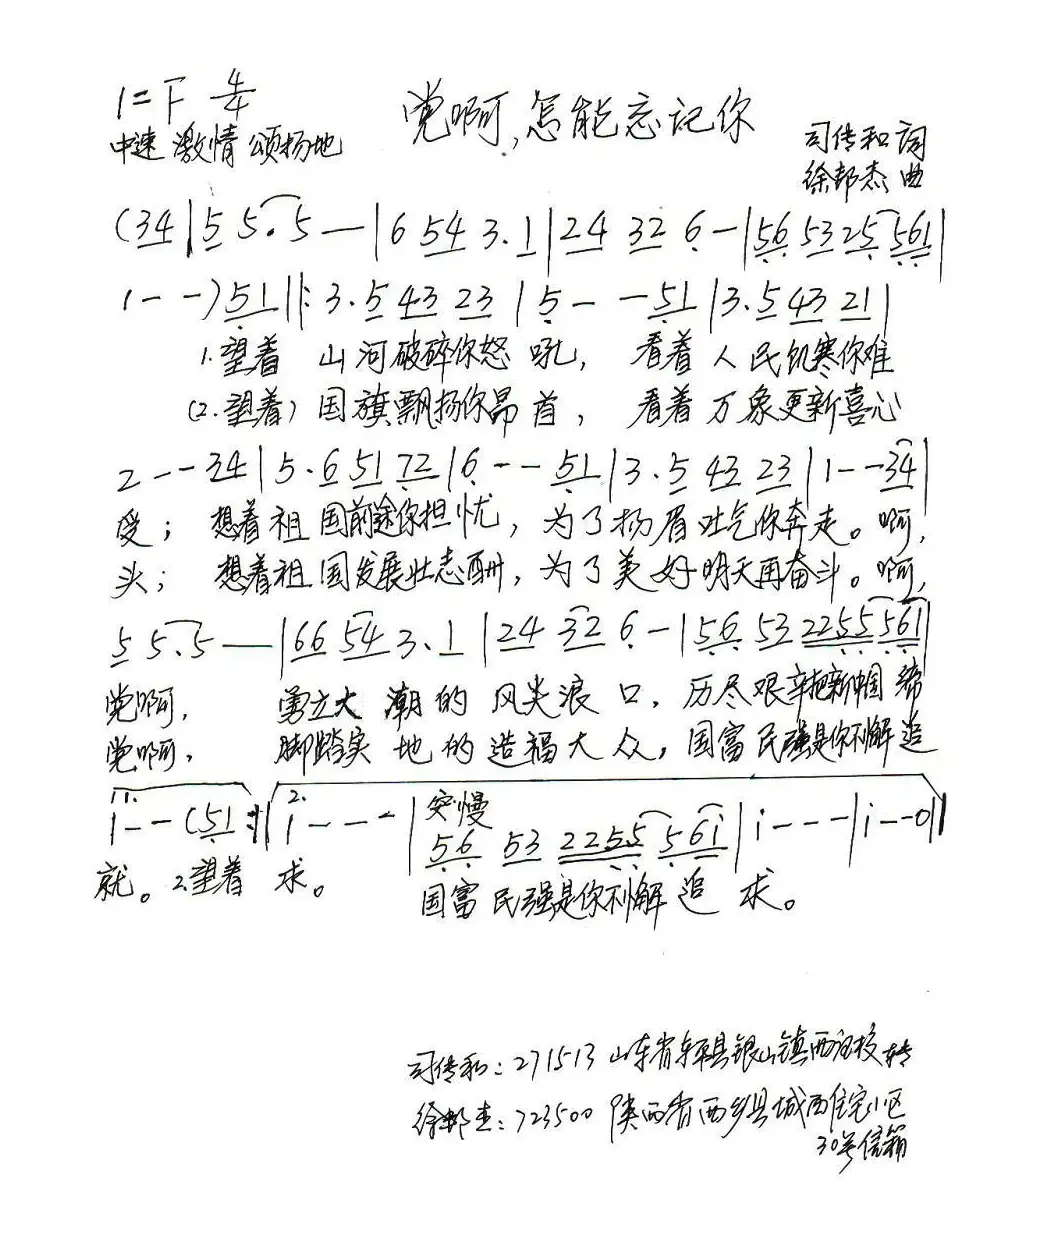 1=F 4/4
党啊,怎能忘记你
中速 激情 颂扬地
司传和 词
徐邦杰 曲
(34|5 5.5—|6 54 3.1|24 32 6—|56 53 25 561|
1--)51||:3.5 43 23|5--51|3.5 43 21|
1.望着 山河破碎你怒吼, 看着人民饥寒你难
(2.望着)国旗飘扬你昂首, 看着万象更新喜心
2--34|5.6 51 72|6--51|3.5 43 23|1--34|
受; 想着祖国前途你担忧,为了扬眉吐气你奔走。啊,
头; 想着祖国发展壮志酬,为了美好明天再奋斗。啊,
5 5.5—|66 54 3.1|24 32 6—|56 53 2255 561|
党啊, 勇立大潮的风尖浪口,历尽艰辛把新中国缔
党啊, 脚踏实地的造福大众,国富民强是你不懈追
1. 2. 突慢
1--(51:||1---|56 53 2255 561|i---|i--0||
就。2望着 求。 国富民强是你不懈追求。
司传和:271513 山东省东平县银山镇西汪校转
徐邦杰:723500 陕西省西乡县城西住宅小区
30号信箱